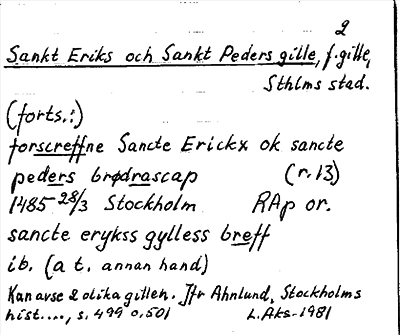 2
Sankt Eriks och Sankt Peders gille, f. gille,
Sthlms stad.
(forts.:)
forscreffne Sancte Erickx ok sancte
peders brødrascap (r. 13)
1485 28/3 Stockholm RAp or.
sancte erykss gylless breff
ib. (a t. annan hand)
Kan avse 2 olika gillen. Jfr Ahnlund, Stockholms
hist...., s. 499 o. 501 L. Aks- 1981